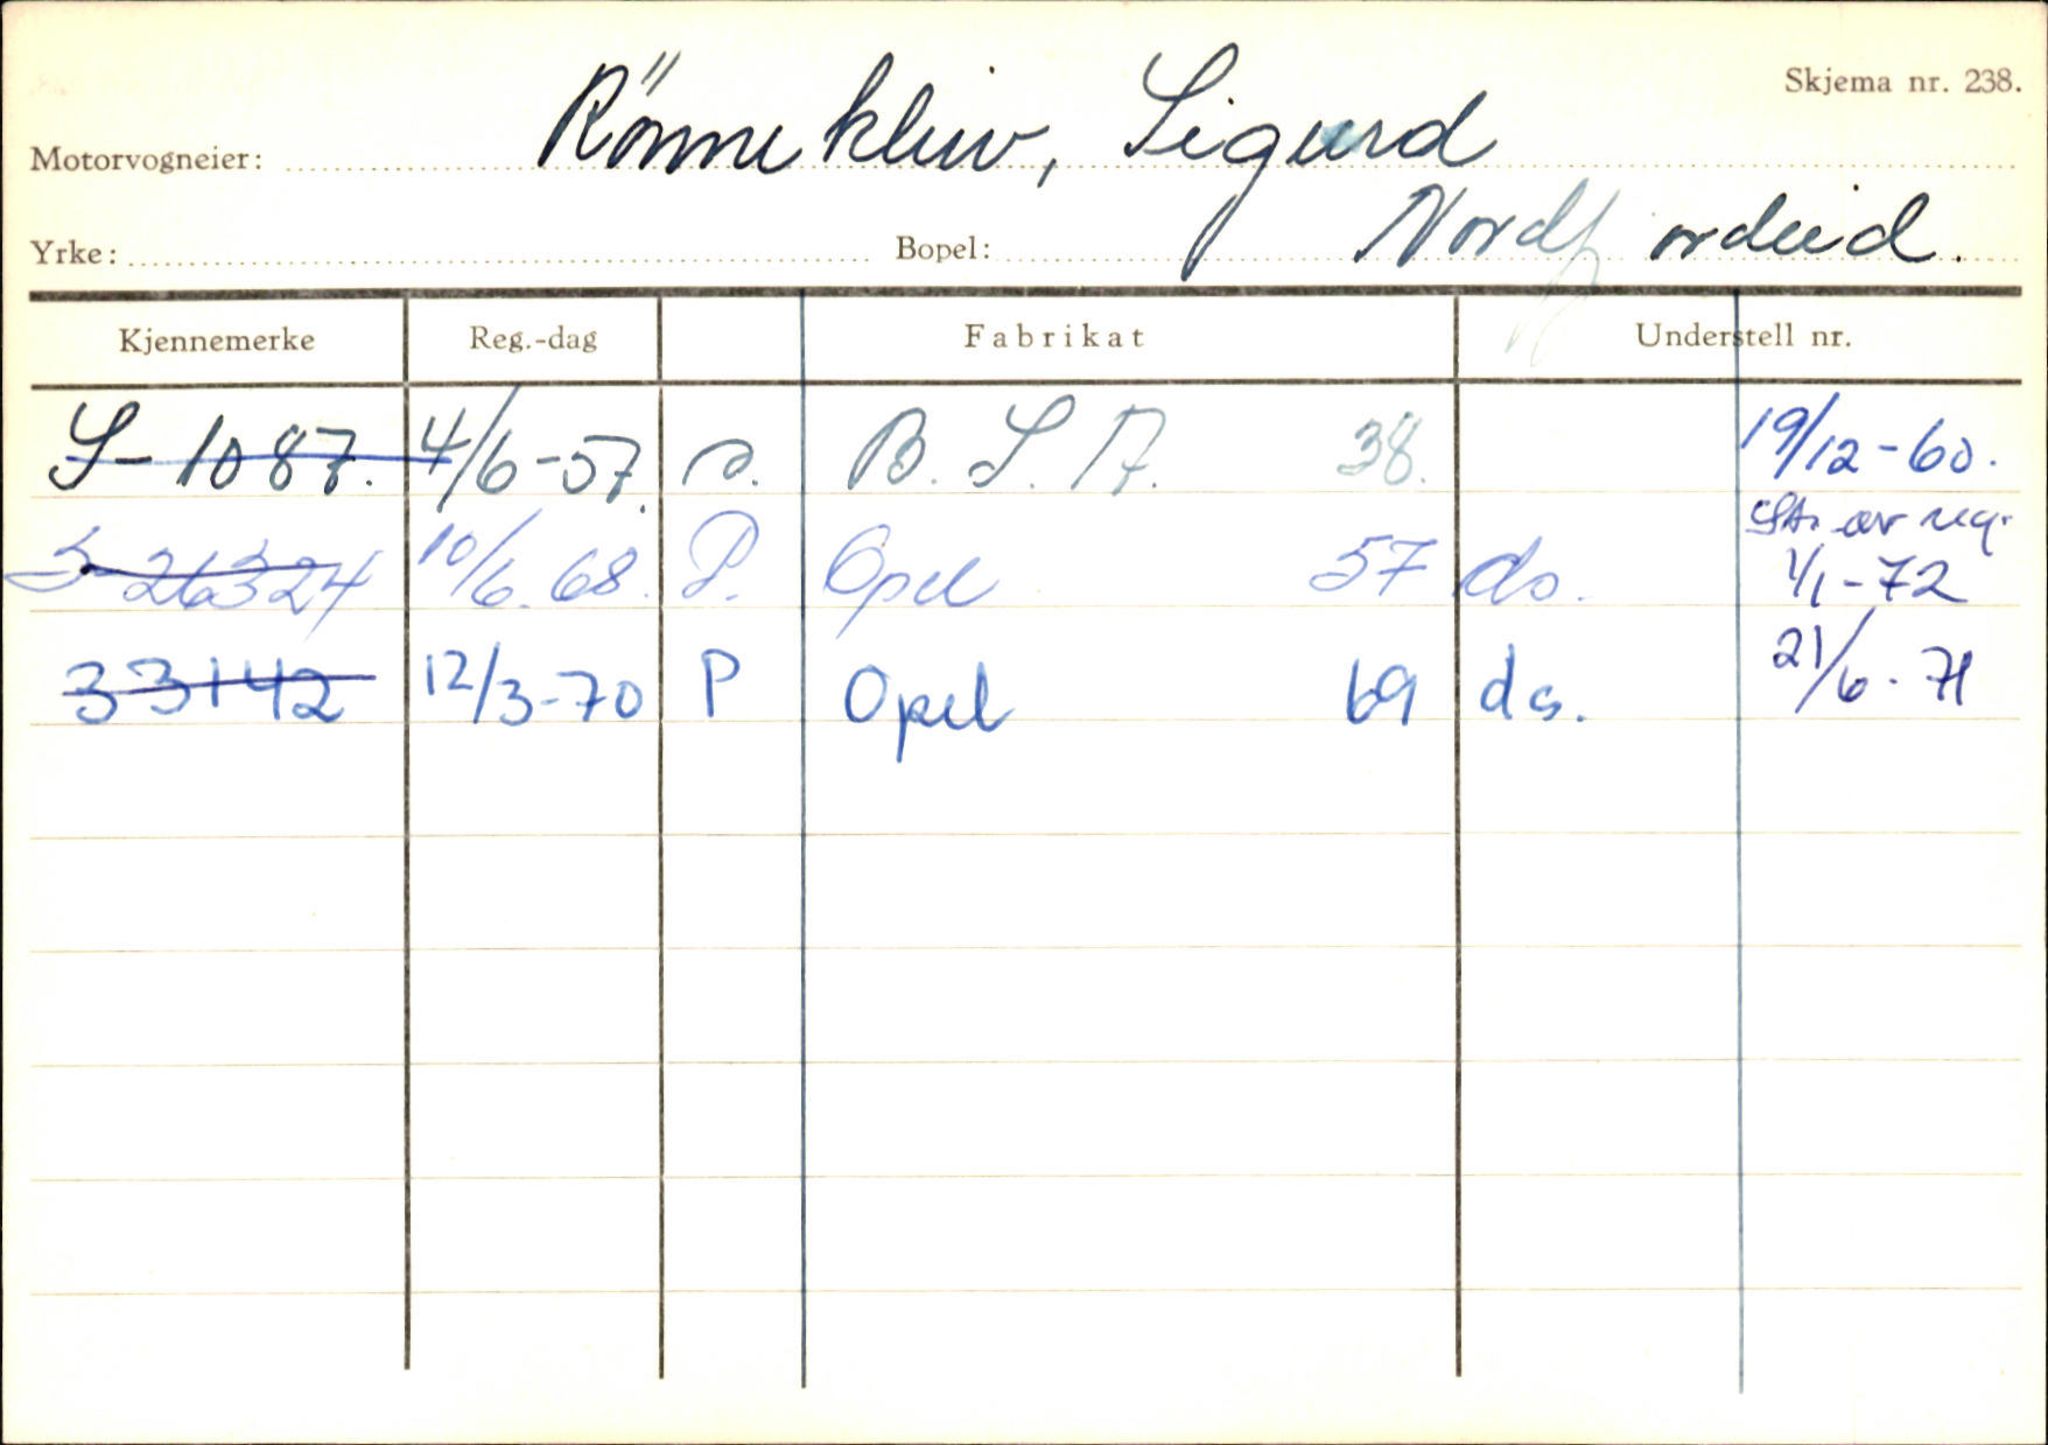 Skjema nr. 238.
Motorvogneier: Rönnekleiv, Sigurd
Yrke: Bopel: Nordfjordeid.
Kjennemerke Reg.-dag Fabrikat Understell nr.
S-1087. 4/6-57. s. B.S.A. 38. 19/12-60.
S-26324 10/6.68. P. Opel 57 ds. Str. av reg. 1/1-72
33142 12/3-70 P Opel 69 ds. 21/6-71